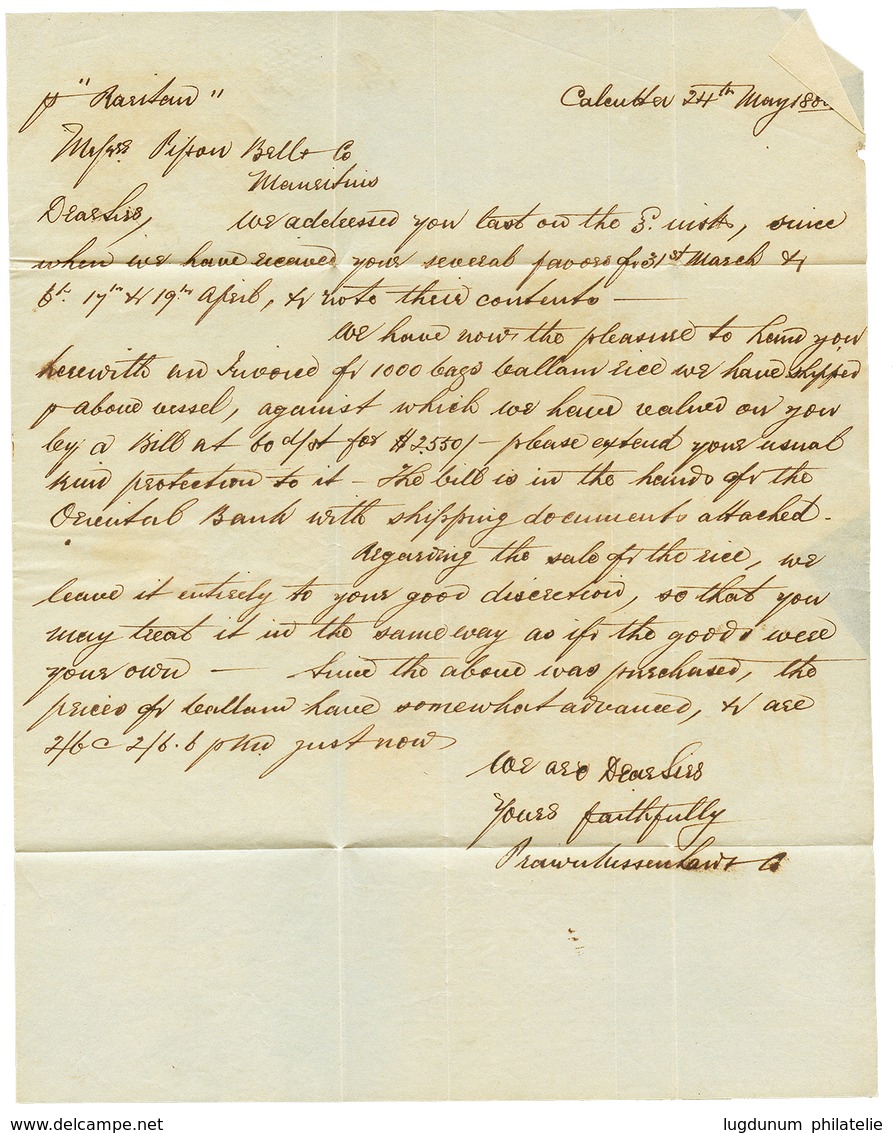 p "Raritan"
Calcutta 24th May 18
Messrs Pipon Bell & Co
Mauritius
Dear Sirs,
We addressed you last on the 3d. inst, since
when we have received your several favors of 31st March &
17th & 19th April, & note their contents —
We have now the pleasure to hand you
herewith an Invoice of 1000 bags ballam rice we have shipped
p above vessel, against which we have valued on you
by a Bill at 60 d/st for $2550/- please extend your usual
kind protection to it - The bill is in the hands of the
Oriental Bank with shipping documents attached.
Regarding the sale of the rice, we
leave it entirely to your good discretion, so that you
may treat it in the same way as if the goods were
your own — Since the above was purchased, the
prices of ballam have somewhat advanced, & are
2/6 2/6.6 p md just now
We are Dear Sirs
Yours faithfully
Prawnkissen Law & Co
www.delcampe.net
lugdunum philatelie